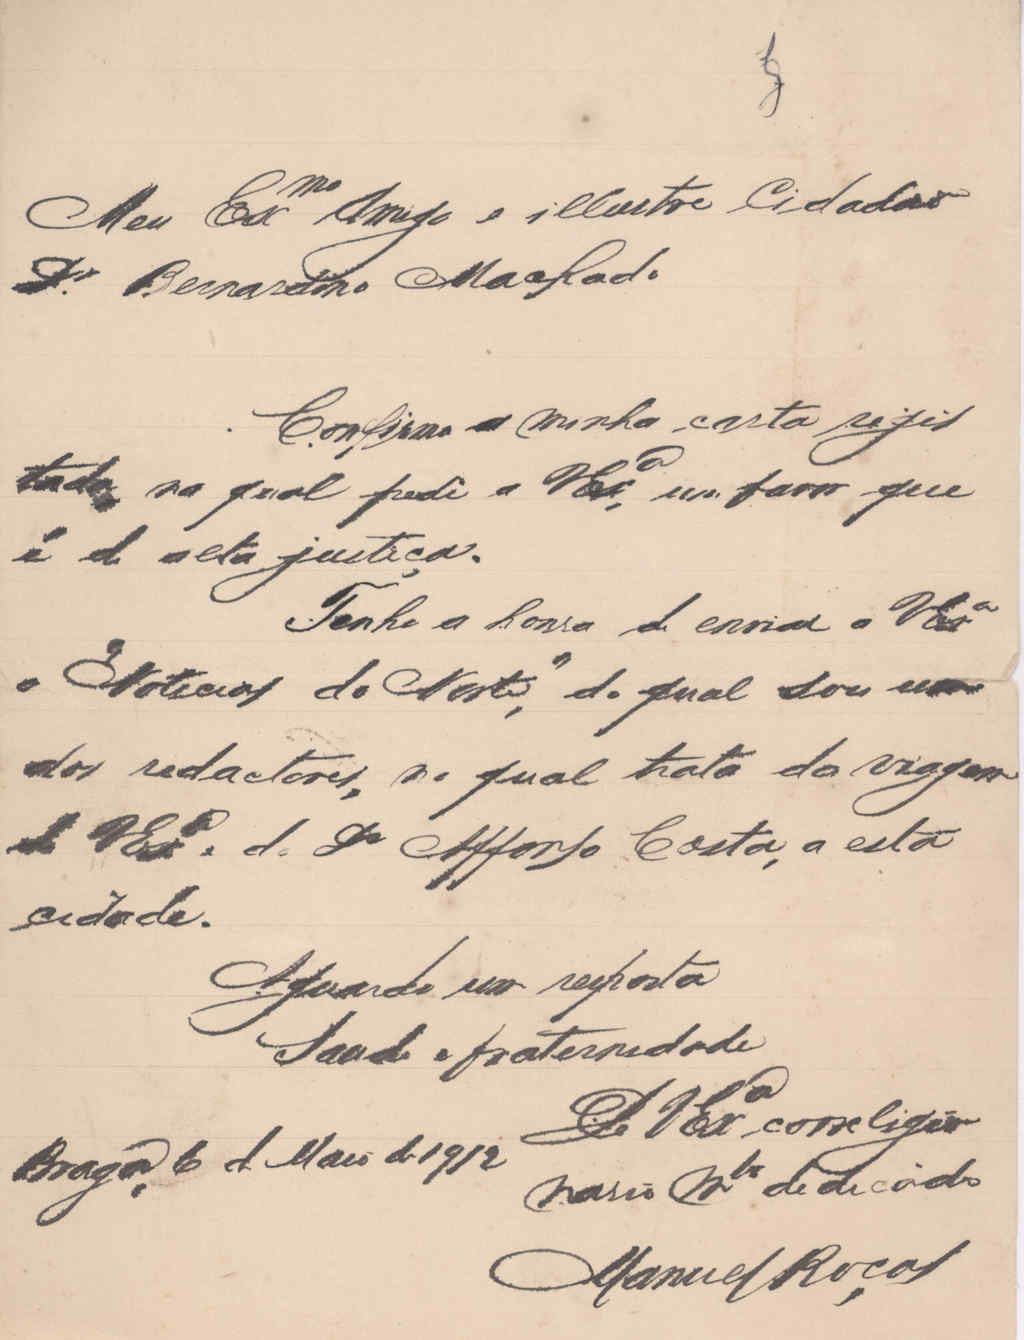 Meu Ex.mo Amigo e illustre Cidadão
Dr Bernardino Machado
Confirmo a minha carta regis
tada, na qual pedi a VEx.a, um favor que
é de alta justiça.
Tenho a honra de enviar a VExa
o "Noticias do Norte", do qual sou um
dos redactores, no qual trata da viagem
de VExa e do Dr Affonso Costa, a esta
cidade.
Aguardo um resposta
Saude e fraternidade
De VExa correligio
nario Mto dedicado
Braga, 6 de Maio de 1912
Manuel Roças